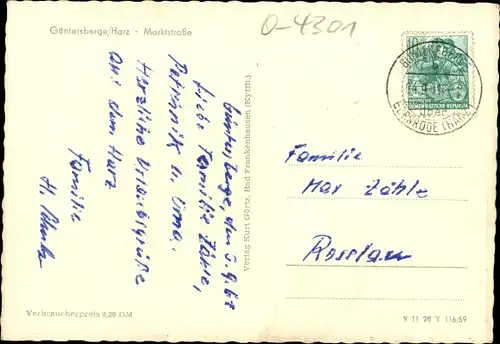 Güntersberge/Harz - Marktstraße
O-4301
Güntersberge, den 3.9.61
Liebe Familie Zähle,
u. Oma.
Herzliche Urlaubsgrüße
aus dem Harz
Familie
Verlag Kurt Görtz, Bad Frankenhausen (Kyffh.)
10
DEUTSCHE DEMOKRATISCHE REPUBLIK
GERNRODE (HARZ)
Familie
Max Zähle
Rosslau
Verbraucherpreis 0,20 DM
V 11 28 T 116/59